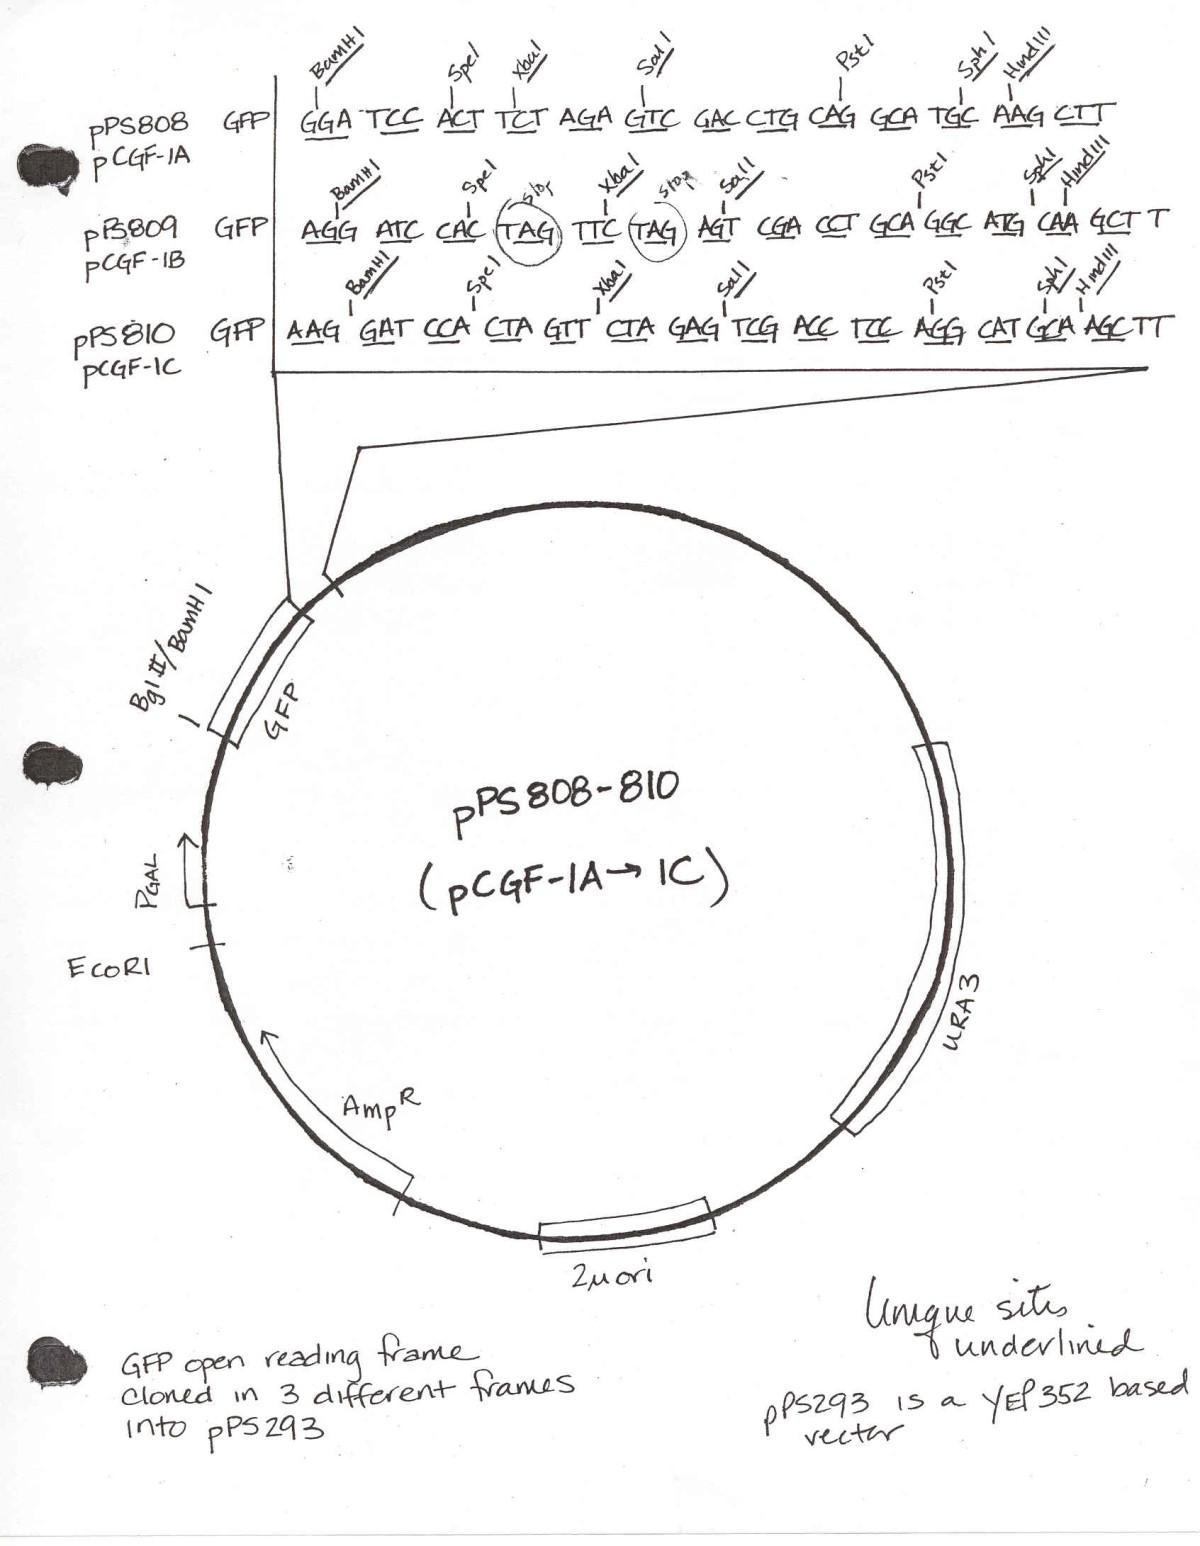 BamHI SpeI XbaI SalI PstI SphI HindIII
pPS808 GFP GGA TCC ACT TCT AGA GTC GAC CTG CAG GCA TGC AAG CTT
pCGF-1A
BamHI SpeI stop XbaI stop SalI PstI SphI HindIII
pPS809 GFP AGG ATC CAC TAG TTC TAG AGT CGA CCT GCA GGC ATG CAA GCT T
pCGF-1B
BamHI SpeI XbaI SalI PstI SphI HindIII
pPS810 GFP AAG GAT CCA CTA GTT CTA GAG TCG ACC TCC AGG CAT GCA AGC TT
pCGF-1C
Bgl II/BamHI
GFP
pPS808-810
(pCGF-1A→1C)
PGAL
EcoRI
URA3
AmpR
2μ ori
Unique sites
underlined
GFP open reading frame
cloned in 3 different frames
into pPS293
pPS293 is a YEP352 based
vector